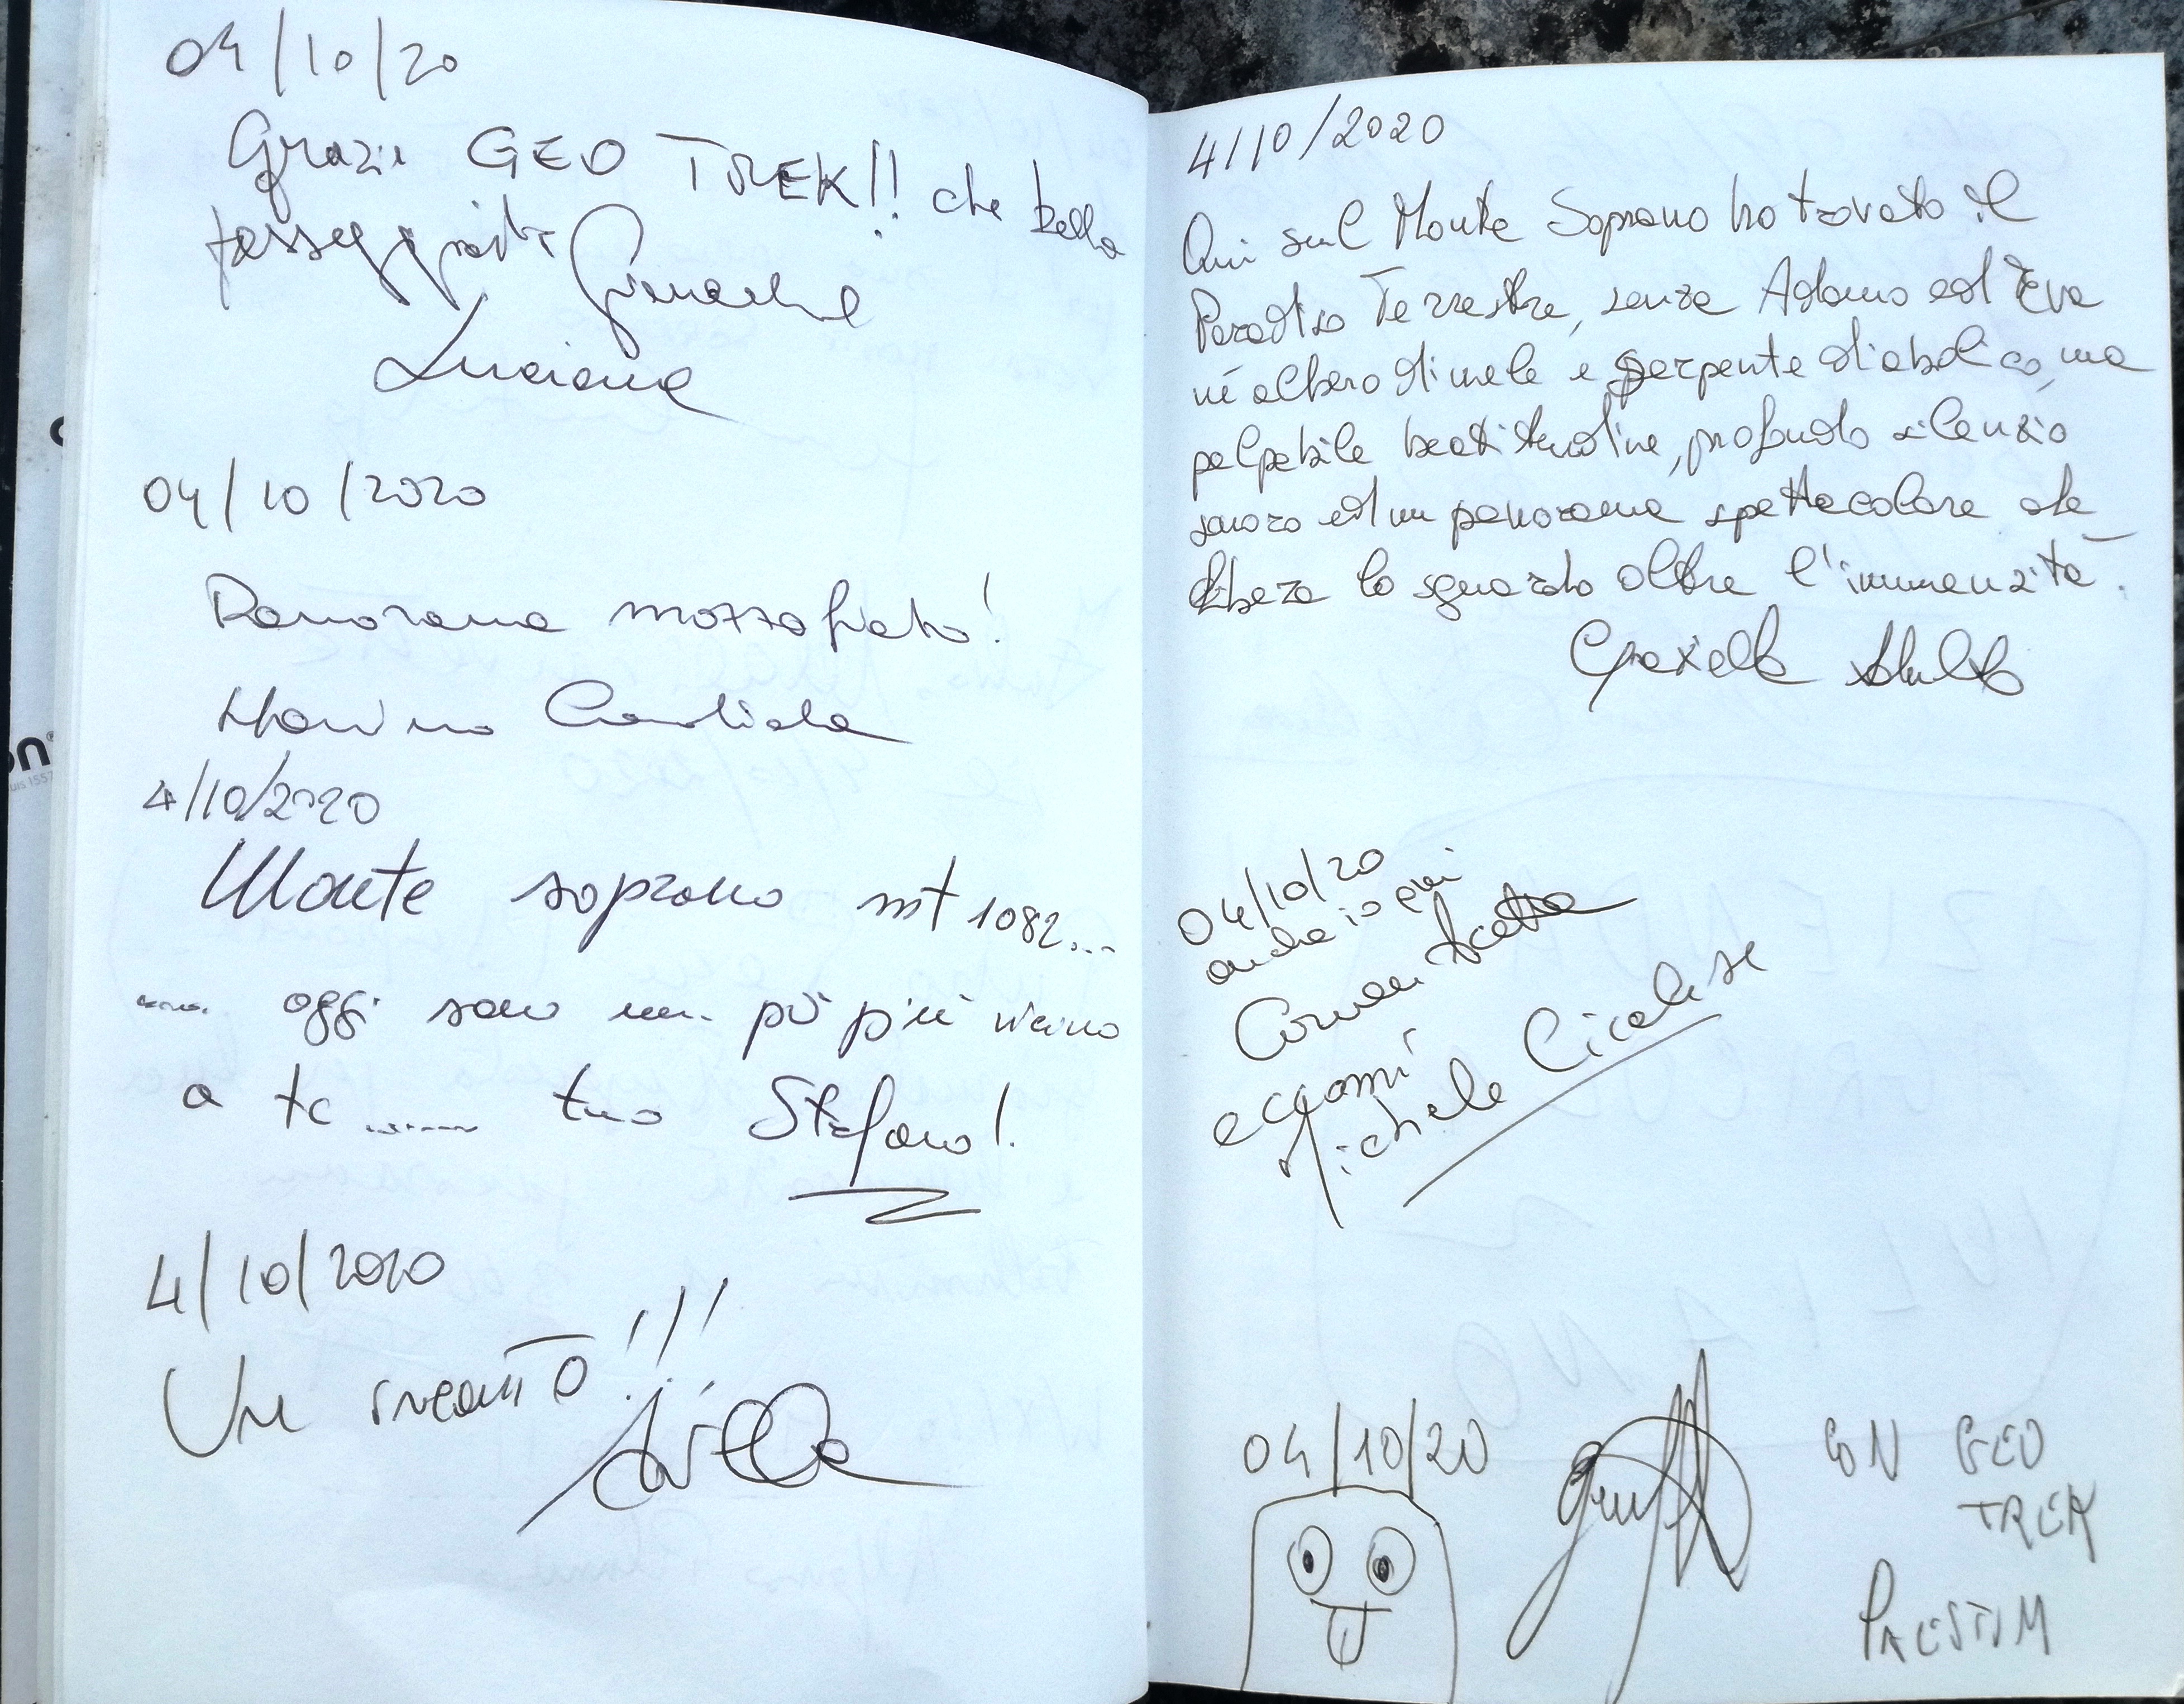 04/10/20
Grazie GEO TREK!! che bella
passeggiata
Luciana
04/10/2020
Panorama mozzafiato!
4/10/2020
Monte soprano mt 1082...
.... oggi sono un pò più vicino
a te ........ tuo Stefano!
4/10/2020
Un incanto!!!
4/10/2020
Qui sul Monte Soprano ho trovato il
Paradiso Terrestre, senza Adamo ed Eva
né albero di mele e serpente diabolico, ma
palpabile beatitudine, profondo silenzio
sonoro ed un panorama spettacolare che
libera lo sguardo oltre l'immensità.
04/10/20
anche io qui
eccomi
Michele Cicalese
04/10/20
CON GEO
TREK
PAESTUM